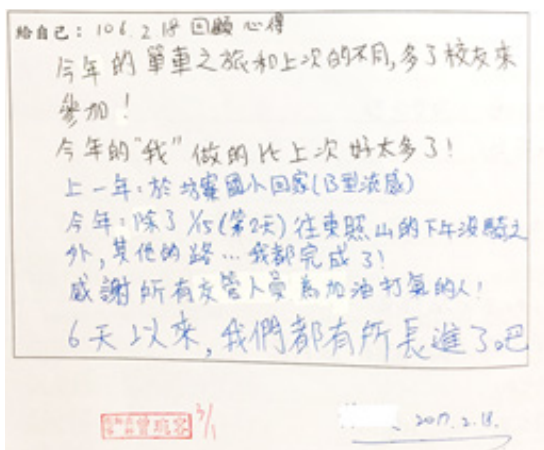 給自己：106.2.18 回顧心得
今年的單車之旅和上次的不同,多了校友來
參加!
今年的"我"做的比上次好太多了!
上一年:於坊寮國小回家(B型流感)
今年:除了 1/25(第2天)往東照山的下午沒騎之
外,其他的路…我都完成了!
感謝所有交管人員為加油打氣的人!
6天以來,我們都有所長進了吧
3/1
2017.2.18.